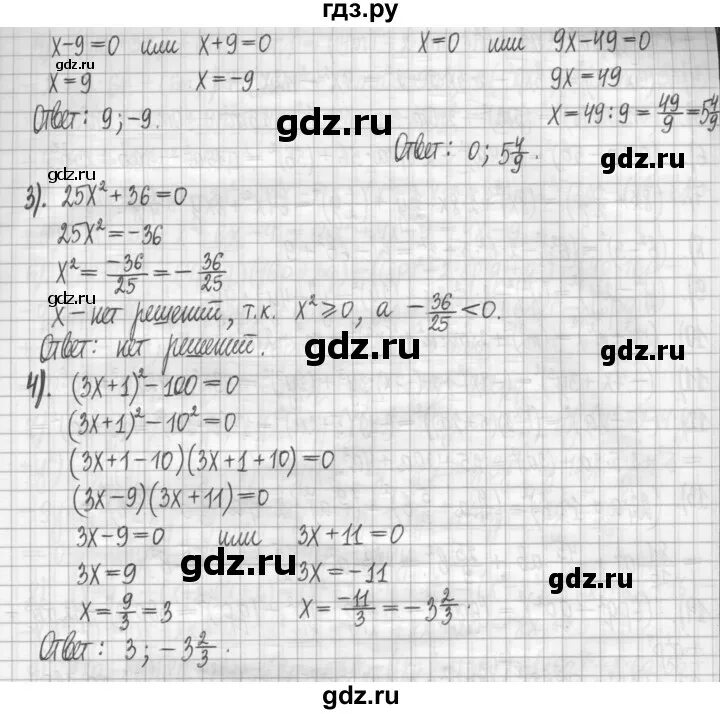 гдз.ру
x-9=0 или x+9=0
x=9 x=-9.
Ответ: 9; -9.
x=0 или 9x-49=0
9x=49
x=49:9=49/9=5 4/9
Ответ: 0; 5 4/9.
gdz.ru
gdz.ru
gdz.ru
gdz.ru
3). 25x²+36=0
25x²=-36
x²=-36/25=-36/25
x-нет решений, т.к. x²⩾0, а -36/25<0.
Ответ: нет решений.
gdz.ru
gdz.ru
gdz.ru
4). (3x+1)²-100=0
(3x+1)²-10²=0
(3x+1-10)(3x+1+10)=0
(3x-9)(3x+11)=0
3x-9=0 или 3x+11=0
3x=9 3x=-11
x=9/3=3 x=-11/3=-3 2/3.
Ответ: 3; -3 2/3.
gdz.ru
gdz.ru
gdz.ru
gdz.ru
gdz.ru